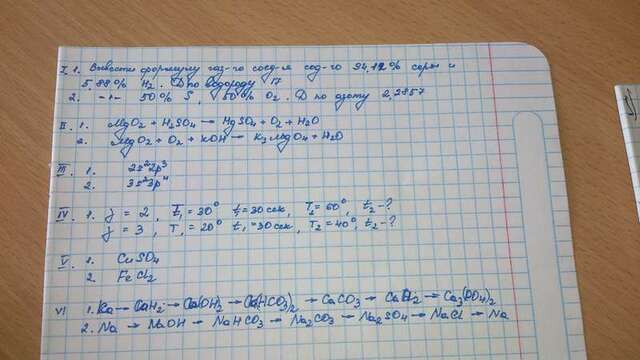 I 1. Вывести формулу газ-го соед-я сод-го 94,12% серы и
5,88% H₂. D по водороду 17
2. -"- 50% S, 50% O₂. D по азоту 2,2857
II. 1. MgO₂ + H₂SO₄ → MgSO₄ + O₂ + H₂O
2. MgO₂ + O₂ + KOH → K₂MgO₄ + H₂O
III. 1. 2s²2p³
2. 3s²3p⁴
IV 1. γ = 2, T₁ = 30° t₁ = 30 сек, T₂ = 60°, t₂ - ?
γ = 3, T₁ = 20° t₁ = 30 сек, T₂ = 40°, t₂ - ?
V 1. CuSO₄
2. FeCl₂
VI 1. Ca → CaH₂ → Ca(OH)₂ → Ca(HCO₃)₂ → CaCO₃ → CaCl₂ → Ca₃(PO₄)₂
2. Na → NaOH → NaHCO₃ → Na₂CO₃ → Na₂SO₄ → NaCl → Na